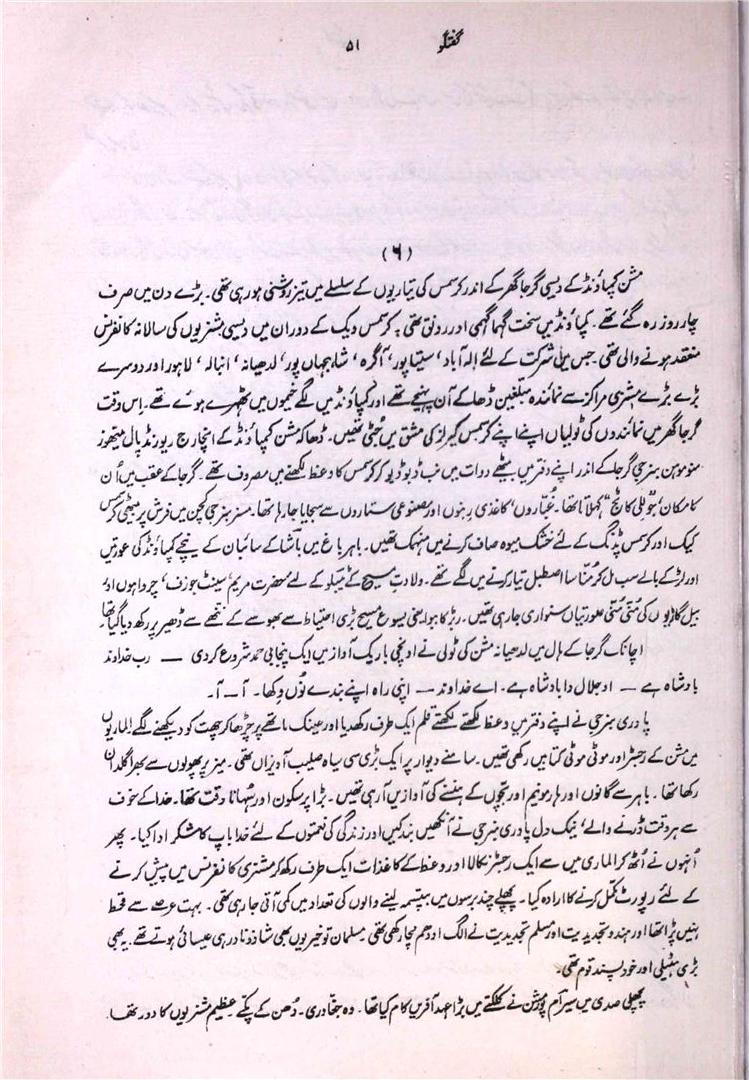 گفتگو ۵۱
(۶)
مشن کمپاؤنڈ کے دیسی گرجا گھر کے اندر کرسمس کی تیاریوں کے سلسلے میں تیز روشنی ہو رہی تھی۔ بڑے دن میں صرف
چار روز رہ گئے تھے۔ کمپاؤنڈ میں سخت گہما گہمی اور رونق تھی۔ کرسمس ویک کے دوران میں دیسی مشنریوں کی سالانہ کانفرنس
منعقد ہونے والی تھی۔ جس میں شرکت کے لئے الہ آباد، سیتا پور، آگرہ، شاہجہاں پور، لدھیانہ، انبالہ، لاہور اور دوسرے
بڑے بڑے مشنری مراکز سے نمائندہ مبلغین ڈھاکے آن پہنچے تھے اور کمپاؤنڈ میں لگے خیموں میں ٹھہرے ہوئے تھے۔ اس وقت
گرجا گھر میں نمائندوں کی ٹولیاں اپنے اپنے کرسمس کیرلز کی مشق میں جُٹی تھیں۔ ڈھاکہ مشن کمپاؤنڈ کے انچارج ریورنڈ پال میتھوز
منوموہن بنرجی گرجا کے اندر اپنے دفتر میں بیٹھے دوات میں نب ڈبو ڈبو کر کرسمس کا وعظ لکھنے میں مصروف تھے۔ گرجا کے عقب میں اُن
کا مکان "لِلی کاٹج" کہلاتا تھا۔ غبّاروں، کاغذی ربنوں اور مصنوعی ستاروں سے سجایا جا رہا تھا۔ مسز بنرجی کچن میں فرش پر بیٹھی کرسمس
کیک اور کرسمس پڈنگ کے لئے خشک میوہ صاف کرنے میں منہمک تھیں۔ باہر باغ میں باشا کے سائبان کے نیچے کمپاؤنڈ کی عورتیں
اور لڑکے بالے سب مل کر مُنّا سا اصطبل تیار کرنے میں لگے تھے۔ ولادتِ مسیح کے ٹیبلو کے لئے حضرت مریم، سینٹ جوزف، چرواہوں اور
بیل گاڑیوں کی مُنّی مُنّی مورتیاں سنواری جا رہی تھیں۔ ربڑ کا ببوا یعنی یسوع مسیح بڑی احتیاط سے بھوسے کے ننھے سے ڈھیر پر رکھ دیا گیا تھا۔
اچانک گرجا کے ہال میں لدھیانہ مشن کی ٹولی نے اونچی باریک آواز میں ایک پنجابی حمد شروع کر دی — رب خداوند
بادشاہ ہے — او جلال دا بادشاہ ہے۔ اے خداوند — اپنی راہ اپنے بندے نُوں وِکھا۔ آ — آ۔
پادری بنرجی نے اپنے دفتر میں وعظ لکھتے لکھتے قلم ایک طرف رکھ دیا اور عینک ماتھے پر چڑھا کر چھت کو دیکھنے لگے۔ الماریوں
میں مشن کے رجسٹر اور موٹی موٹی کتابیں رکھی تھیں۔ سامنے دیوار پر ایک بڑی سی سیاہ صلیب آویزاں تھی۔ میز پر پھولوں سے بھرا گلدان
رکھا تھا۔ باہر سے گانوں اور ہارمونیم اور بچّوں کے ہنسنے کی آوازیں آ رہی تھیں۔ بڑا پرسکون اور سُہانا وقت تھا۔ خدا کے خوف
سے ہر وقت ڈرنے والے، نیک دل پادری بنرجی نے آنکھیں بند کیں اور زندگی کی نعمتوں کے لئے خدا باپ کا شکر ادا کیا۔ پھر
اُنہوں نے اُٹھ کر الماری میں سے ایک رجسٹر نکالا اور وعظ کے کاغذات ایک طرف رکھ کر مشنری کانفرنس میں پیش کرنے
کے لئے رپورٹ مکمل کرنے کا ارادہ کیا۔ پچھلے چند برسوں میں بپتسمہ لینے والوں کی تعداد میں کمی آتی جا رہی تھی۔ بہت عرصے سے قحط
نہیں پڑا تھا اور ہندو تجدیدیت اور مسلم تجدیدیت نے الگ اودھم مچا رکھی تھی۔ مسلمان تو خیر یوں بھی شاذ و نادر ہی عیسائی ہوتے تھے۔ یہ بھی
بڑی ہٹیلی اور خود پسند قوم تھی۔
پچھلی صدی میں سیرام پور مشن نے کلکتے میں بڑا عہد آفریں کام کیا تھا۔ وہ جغادری۔ دُھن کے پکے عظیم مشنریوں کا دور تھا۔